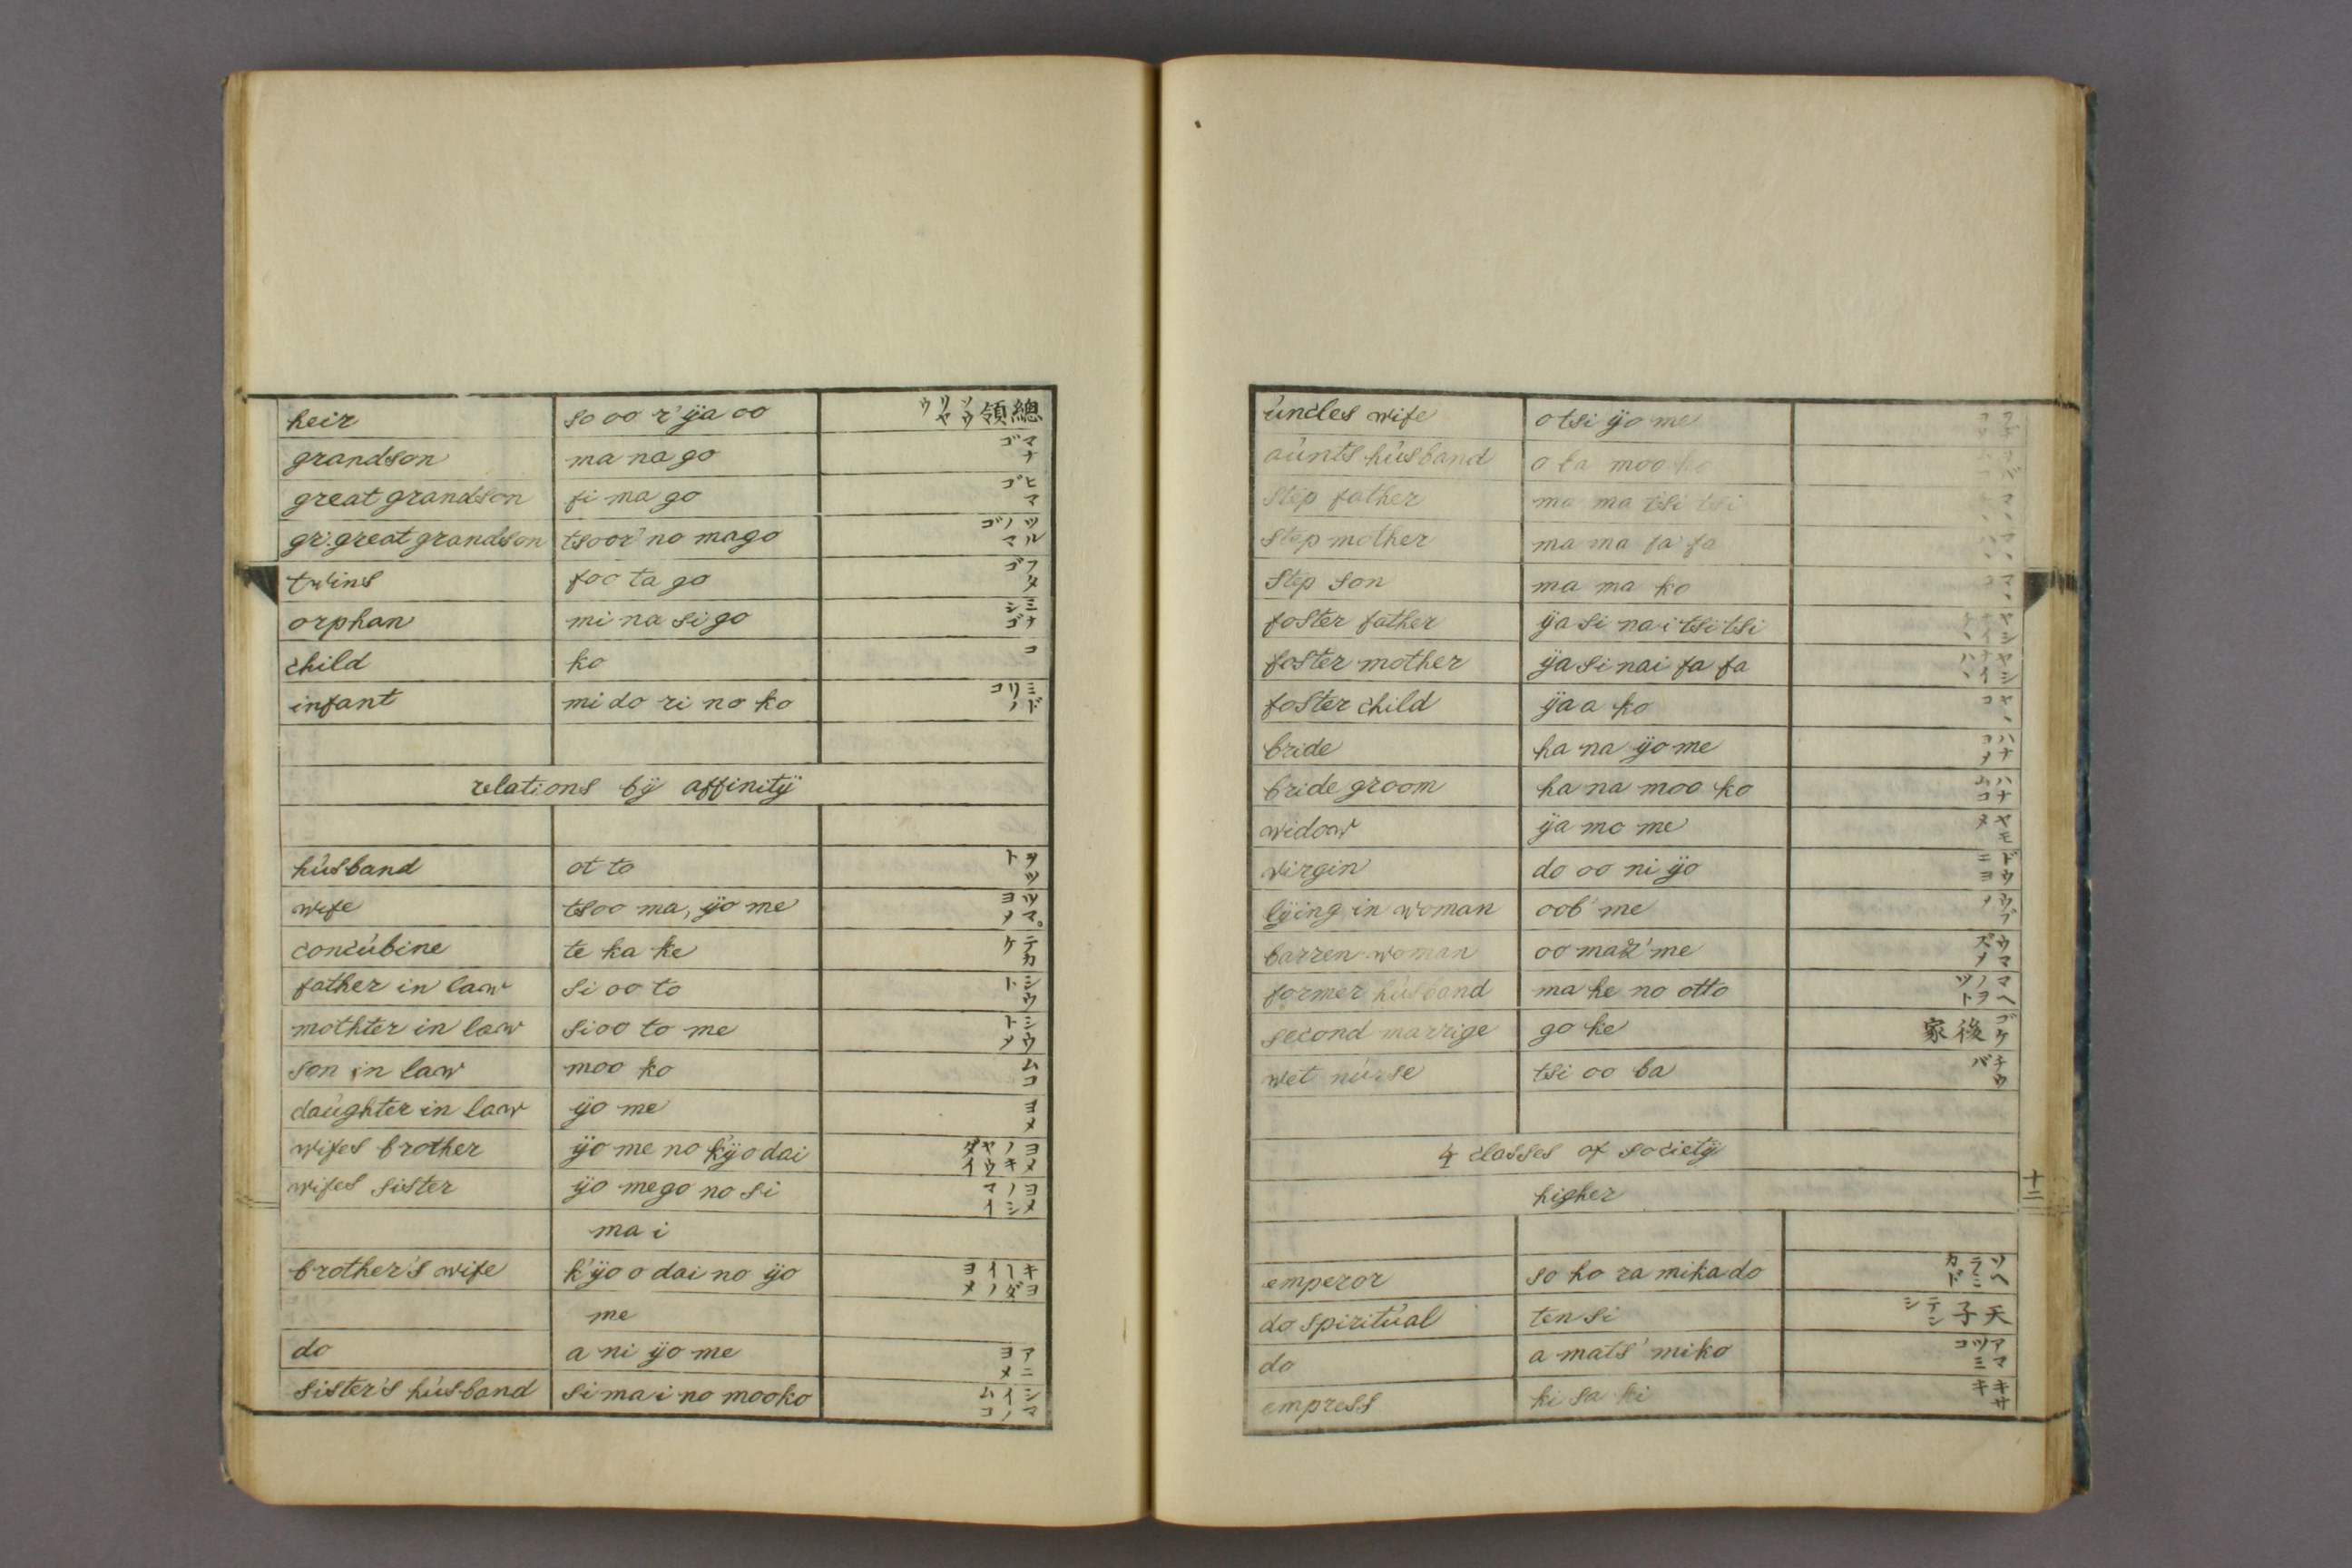 heir so oo r'ÿa oo 總領ソウリヤウ
grandson ma na go マナゴ
great grandson fi ma go ヒマゴ
gr: great grandson tsoor' no mago ツルノマゴ
twins foo ta go フタゴ
orphan mi na si go ミナシゴ
child ko コ
infant mi do ri no ko ミドリノコ
relations bÿ affinitÿ
húsband ot to ヲツト
wife tsoo ma, ÿo me ツマ。ヨメ
concúbine te ka ke テカケ
father in law si oo to シウト
mothter in law sioo to me シウトメ
son in law moo ko ムコ
daúghter in law ÿo me ヨメ
wifes brother ÿo me no k'ÿo dai ヨメノキヤウダイ
wifes sister ÿo mego no si ヨメノシマイ
ma i
brother's wife k'ÿo o dai no ÿo キヨーダイノヨメ
me
do a ni ÿo me アニヨメ
sister's húsband si ma i no mooko シマイノムコ
úncles wife otsi ÿo me
aúnts húsband o ba moo ko
step father ma ma tsi tsi
step mother ma ma fa fa マヽハヽ
step son ma ma ko マヽコ
foster father ÿa si na i tsi tsi ヤシナイチヽ
foster mother ÿa si nai fa fa ヤシナイハヽ
foster child ÿa a ko ヤヽコ
bride ha na ÿo me ハナヨメ
bride groom ha na moo ko ハナムコ
widow ÿa mo me ヤモメ
virgin do oo ni ÿo ドウニヨ
lÿing in woman oob' me ウブメ
barren woman oo maz' me ウマズメ
former húsband ma he no otto マヘノヲツト
second marrige go ke 後家ゴケ
wet núrse tsi oo ba チウバ
4 classes of societÿ
higher
十二
emperor so ho ra mikado ソヘラミカド
do spiritúal ten si 天子テンシ
do a mats' miko アマツミコ
empress ki sa ki キサキ